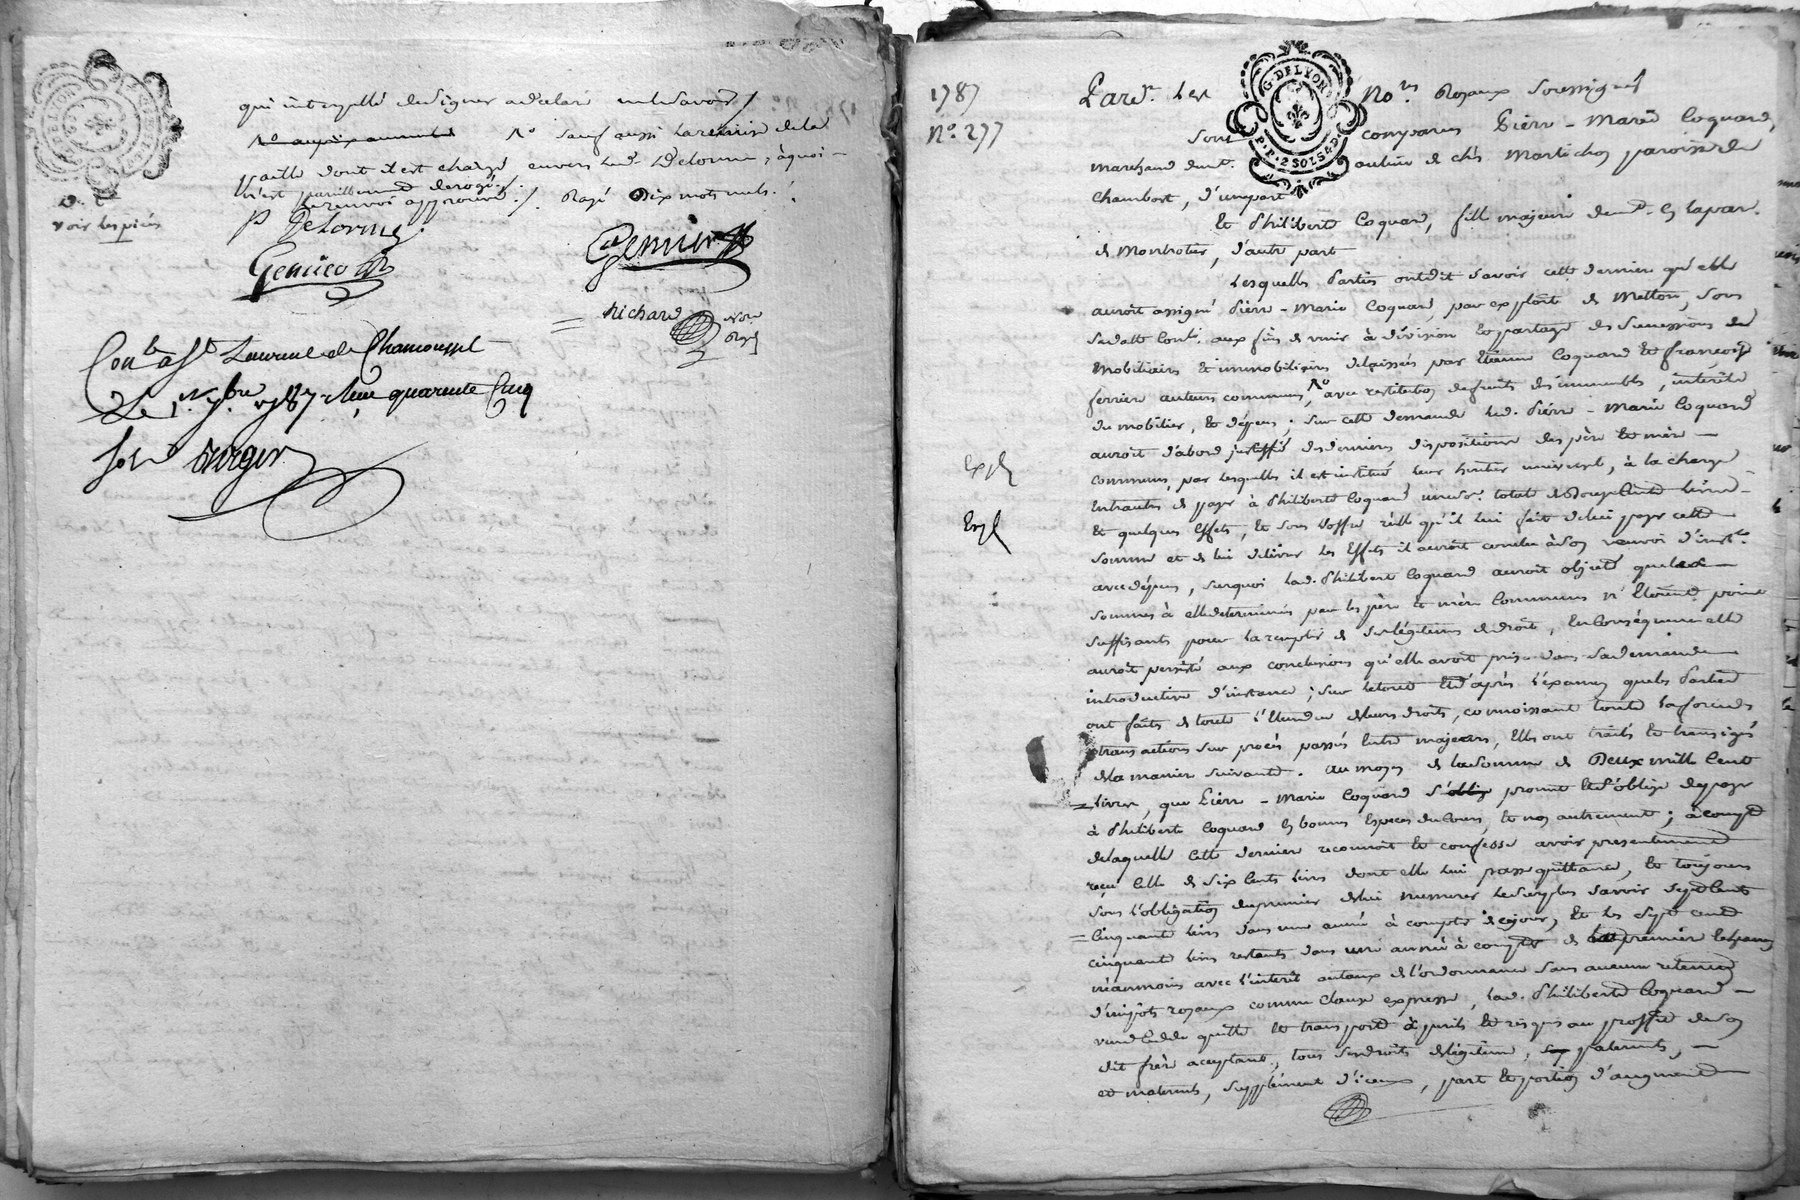 qui interpellé de signer a declaré ne le savoir /
Ro sauf aussi la remise de la
paille dont il est chargé envers led. Delorme, à quoi
n'est pareillement derogé /.
le renvoi approuvé /. Rayé Dix mots nuls./
voir les pieces
P Delorme
Genier
Genier
Richard
Nore
Royal
Conlé à St Laurent de Chamousset
Le 1er 7bre 1787 Reçu quarante Cinq
sols
G. DE LYON
P.P. 2 SOLS 4 D.
1787
No. 277
Pardt. Les Nores Royaux soussignés
sont comparus Pierre-Marie Coquard,
marchand demt. au lieu de chés Martichon paroisse de
Chambost, d'une part
Et Philiberte Coquard, fille majeure demt. en la par.
de Montrotier, d'autre part
Lesquelles Parties ont dit savoir cette derniere qu'elle
auroit assigné Pierre-Marie Coquard, par exploit de Metton, sous
sa date Conlé. aux fins de venir à division et partage des successions
Mobiliaires et immobiliaires delaissées par Etienne Coquard et françoise
ferrier auteurs communs, avec restitution de fruits des immeubles, intérêts
du mobilier, et dépens; sur cette demande led. Pierre-Marie Coquard
auroit d'abord justiffié des dernieres dispositions des père et mère
communs, par lesquelles il est institué leur heritier universel, à la charge
Entr'autres de payer à Philiberte Coquard une somme totale de
Expl
Et quelques Effets, et sous l'offre réelle qu'il lui fait de lui payer cette
Expl
somme et de lui delivrer les Effets il auroit conclu à son renvoi d'instce.
avec dépens, surquoi lad. Philibert Coquard auroit objecté que les
sommes à elle determinées par les père et mère Communs n'étoient point
suffisants pour la remplir de ses légitimes de droit, En Conséquence elle
auroit persisté aux conclusions qu'elle avoit prises dans sa demande
introductive d'instance; sur le tout et d'après l'examen que les Parties
ont faits de toute l'Etendue de leurs droits, connoissant toute la force des
transactions sur procès passés Entre majeurs, Elles ont traités et transigés
de la maniere suivante. au moyen de la somme de Deux mille Cent
Livres, que Pierre-Marie Coquard s'oblige promet et s'oblige de payer
à Philiberte Coquard en bonnes Especes du Cours, et non autrement; à compte
de laquelle cette derniere reconnoit et confesse avoir presentement
reçu celle de six Cents Livres dont elle lui passe quittance, et toujours
sous l'obligation du premier de lui numerer le surplus savoir sept Cents
Cinquante Livres dans une année à compter de ce jour, et les sept cents
cinquante Livres restants dans une année à compter de
néanmoins avec l'interêt au taux de l'ordonnance sans aucune retenue
d'impôts royaux comme Clause expresse, lad. Philiberte Coquard
vend Cede quitte et transporte à perils et risques au proffit de son
dit frère acceptant, tous ses droits de légitime, paternels,
et maternels, supplément d'iceux, part et portion d'augment